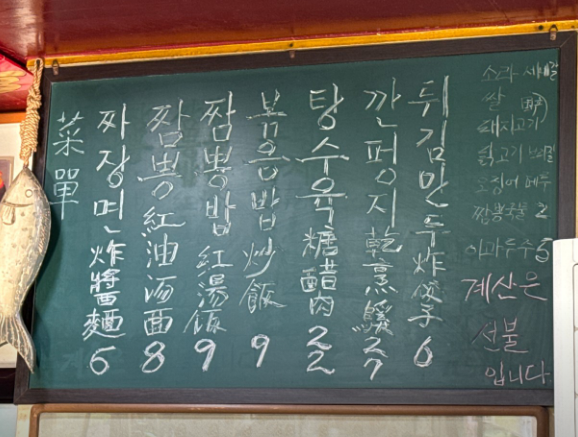 菜單
짜장면 炸醬麵 6
짬뽕 紅油湯面 8
짬뽕밥 紅湯飯 9
볶음밥 炒飯 9
탕수육 糖醋肉 22
깐풍지 乾烹鷄 27
튀김만두 炸餃子 6
소라
쌀
돼지고기
닭고기
오징어
짬뽕국물 2
이과두주 5
계산은
선불
입니다